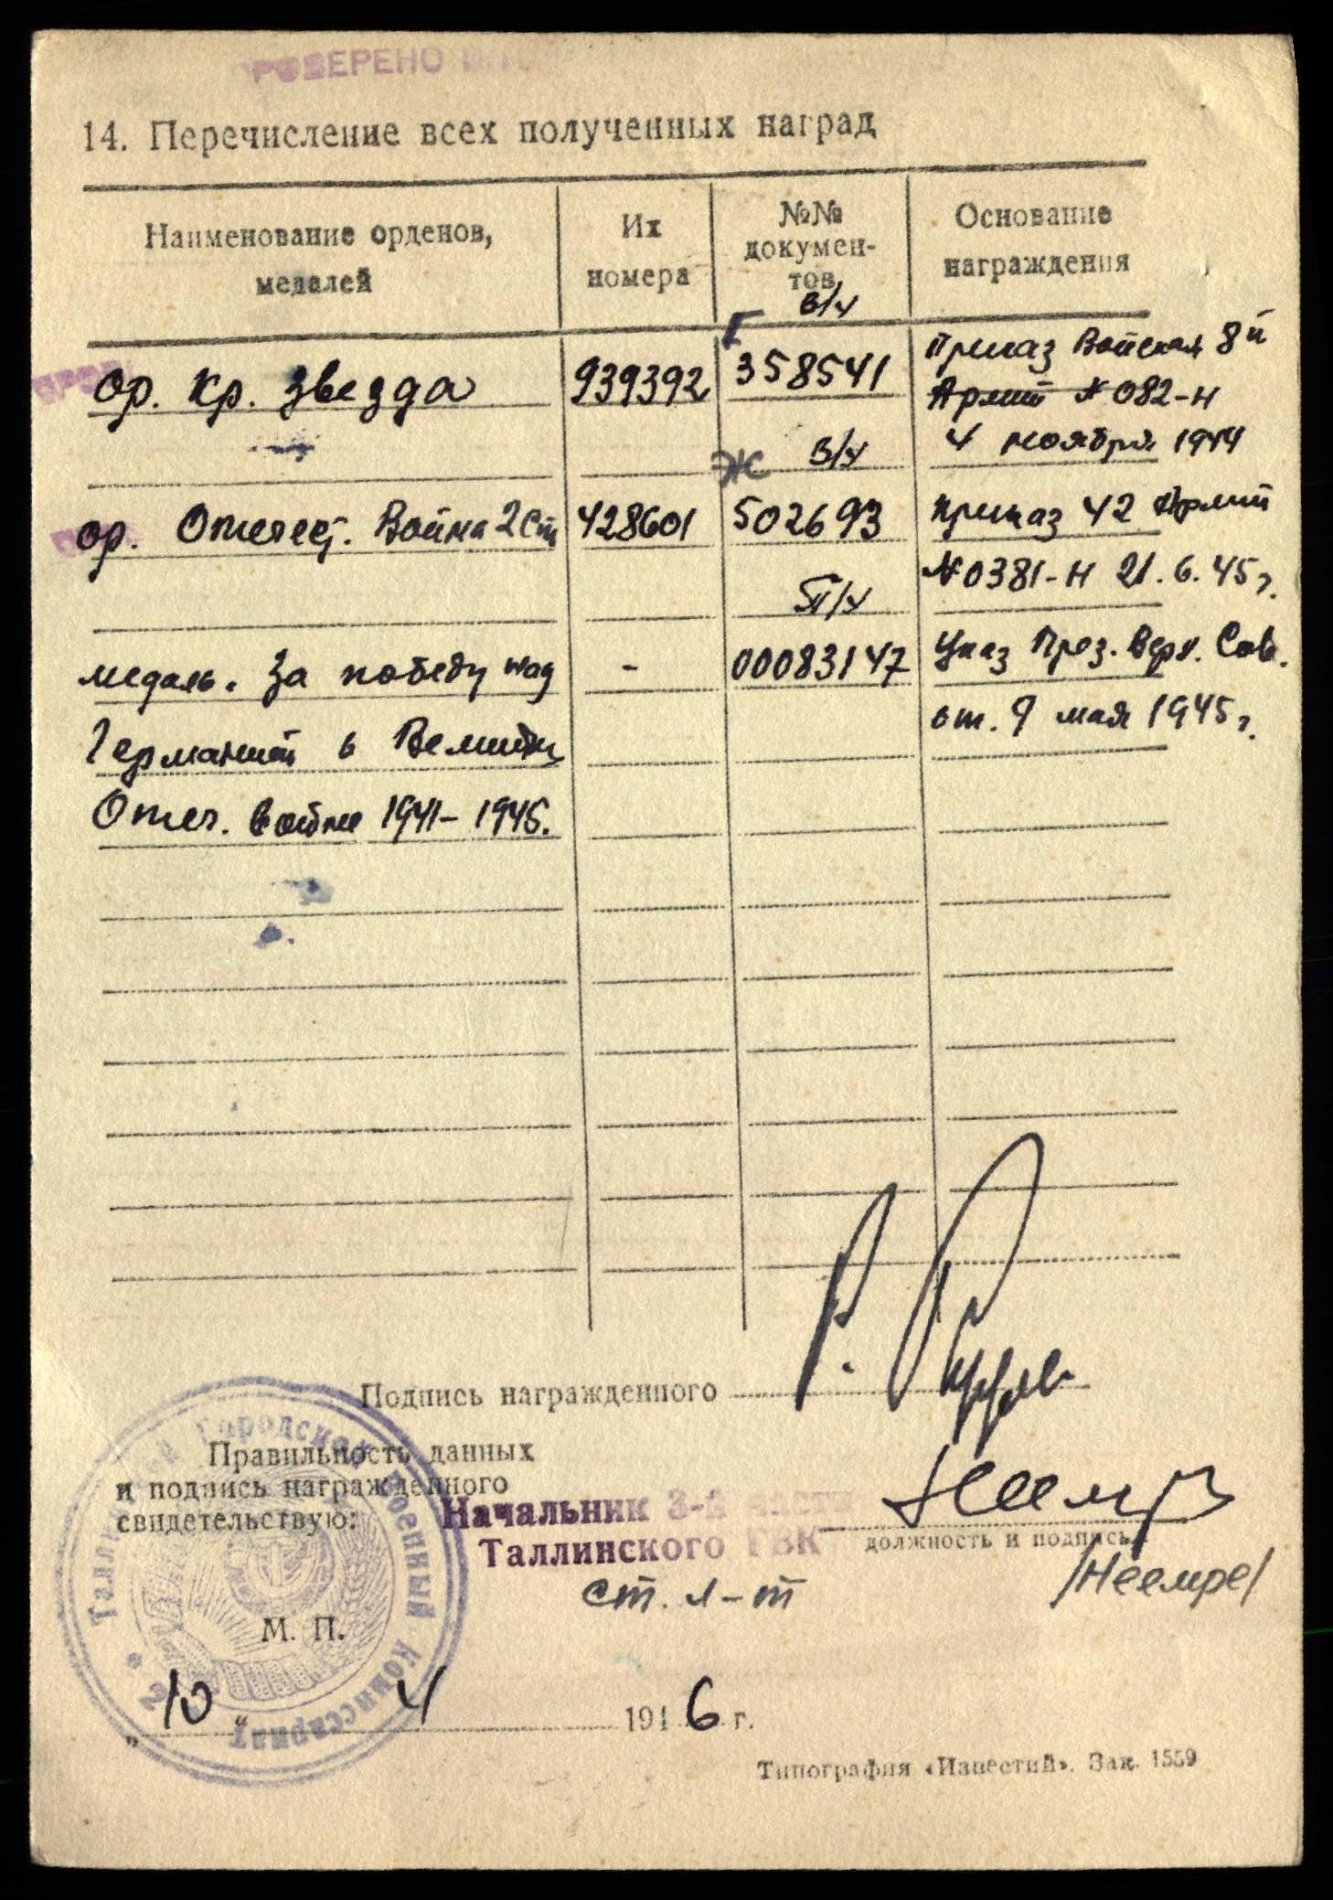 ПРОВЕРЕНО
14. Перечисление всех полученных наград
Наименование орденов,
медалей
Их
номера
№№
докумен-
тов
Основание
награждения
в/ч
Г
ор. Кр. Звезда
939392
358541
Приказ Войскам 8й
Армии № 082-Н
4 ноября 1944
Ж
в/ч
ор. Отечест. Война 2 ст
428601
502693
приказ 42 Армии
№ 0381-Н 21.6.45 г.
медаль. За победу над
-
00083147
Указ През. Верх. Сов.
от. 9 мая 1945 г.
Германией в Великой
Отеч. войне 1941-1945.
Подпись награжденного
Правильность данных
и подпись награжденного
свидетельствую:
Начальник 3-й части
Таллинского ГВК
ст. л-т
должность и подпись
/Неемре/
М. П.
Городской Военный Комиссариат
„10“ 4 1946 г.
Типография «Известий». Зак. 1559